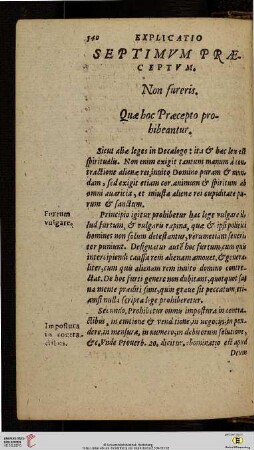 340 EXPLICATIO
SEPTIMVM PRÆ-
CEPTVM.
Non fureris.
Quæ hoc Præcepto pro-
hibeantur.
Sicut aliæ leges in Decalogo: ita & hæc lex est
spiritualis. Non enim exigit tantum manum à cō-
tractione alienæ rei, inuito Domino puram & mun-
dam, sed exigit etiam cor, animum & spiritum ab
omni auaritia, et iniusta alienæ rei cupiditate pu-
rum & sanctum.
Furtum
vulgare.
Principio igitur prohibetur hac lege vulgare il-
lud furtum, & vulgaris rapina, quæ & ipsi politici
homines non solum detestantur, verumetiam seueri-
ter puniunt. Designatur autē hoc furtum, cum quis
intercipiendi causa rem alienam amouet, & genera-
liter, cum quis alienam rem inuito domino contre-
ctat. De hoc furti genere non dubitant, quotquot sa-
na mente præditi sunt, quin graue sit peccatum, eti-
amsi nulla scripta lege prohiberetur.
Impostura
in contra-
ctibus.
Secundo, Prohibetur omnis impostura in contra-
ctibus, in emtione & venditione, in negocijs, in pon-
dere, in mensura, in numero, in debitorum solutione,
&c. Vnde Prouerb. 20. dicitur, abominatio est apud
Deum